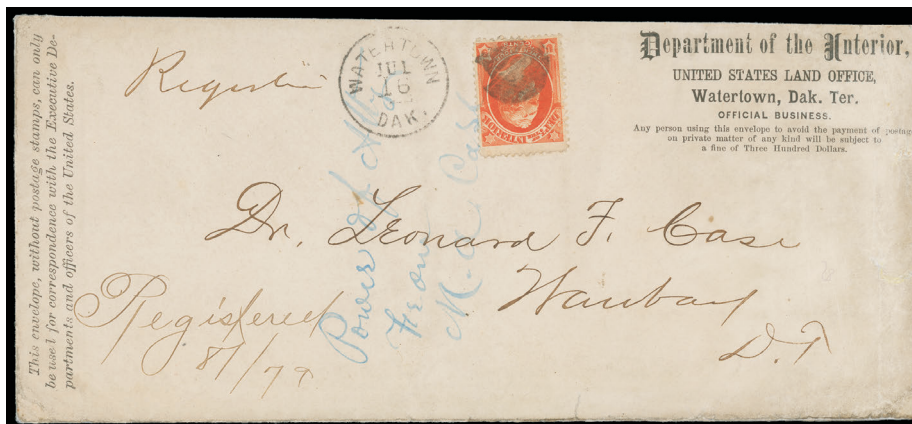 This envelope, without postage stamps, can only
be used for correspondence with the Executive De-
partments and officers of the United States.
Register
WATERTOWN
JUL
16
DAK.
Department of the Interior,
UNITED STATES LAND OFFICE,
Watertown, Dak. Ter.
OFFICIAL BUSINESS.
Any person using this envelope to avoid the payment of postage
on private matter of any kind will be subject to
a fine of Three Hundred Dollars.
Dr. Leonard F. Case
Waubay
D.T
Registered
Power of
From
M. A. Case